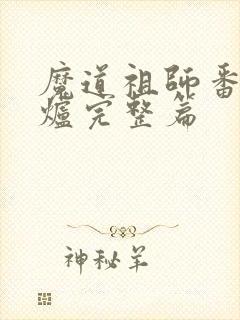 魔道祖師番
爐完整篇
神秘羊